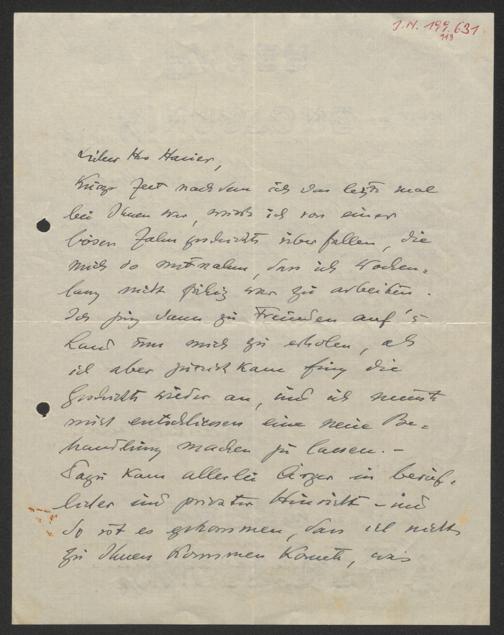 J.N. 199.631
113
Lieber Herr Hauer,
Kurze Zeit nachdem ich das letzte mal
bei Ihnen war, wurde ich von einer
bösen Zahngeschichte überfallen, die
mich so mitnahm, dass ich wochen-
lang nicht fähig war zu arbeiten.
Ich ging dann zu Freunden auf's
Land um mich zu erholen, als
ich aber zurück kam fing die
Geschichte wieder an, und ich musste
mich entschliessen eine neue Be-
handlung machen zu lassen. –
Dazu kam allerlei Ärger in beruf-
licher und privater Hinsicht – und
so ist es gekommen, dass ich nicht
zu Ihnen kommen konnte, was